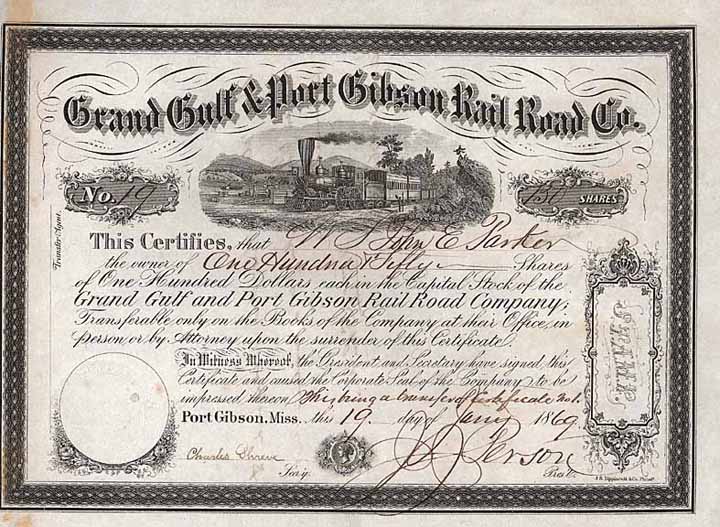 Grand Gulf & Port Gibson Rail Road Co.
No. 19
SHARES
Transfer Agent.
This Certifies, that W S John E Parker
the owner of One Hundred & Fifty Shares
of One Hundred Dollars each in the Capital Stock of the
Grand Gulf and Port Gibson Rail Road Company;
Transferable only on the Books of the Company at their Office, in
person, or by Attorney upon the surrender of this Certificate.
In Witness Whereof, the President and Secretary have signed this
Certificate and caused the Corporate Seal of the Company to be
impressed thereon this being a transfer of certificate No 1.
Port Gibson, Miss. this 19. day of Jany 1869
Charles Shreve
Sec'y.
Pres't.
SHARES